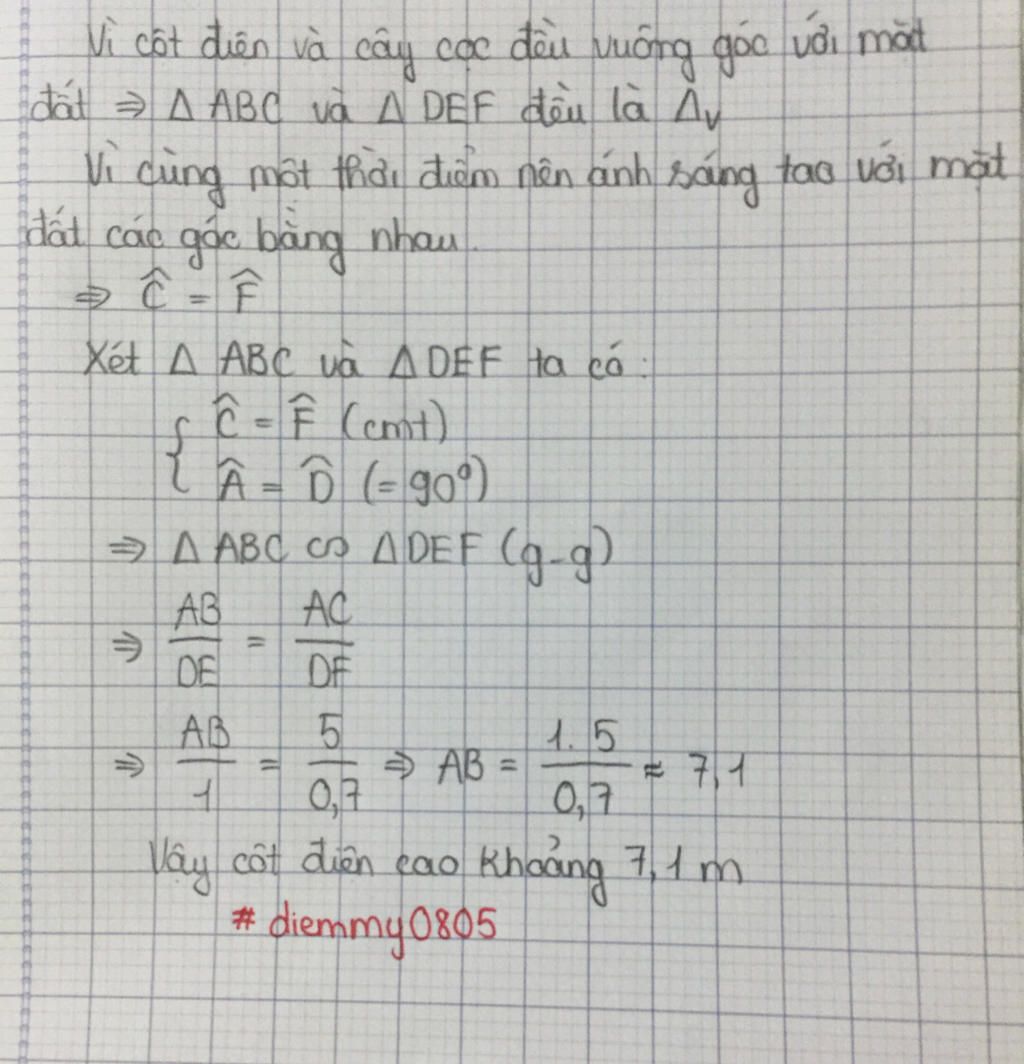 Vì cột điện và cây cọc đều vuông góc với mặt
đất ⇒ Δ ABC và Δ DEF đều là Δv
Vì cùng một thời điểm nên ánh sáng tạo với mặt
đất các góc bằng nhau.
⇒ Ĉ = F̂
Xét Δ ABC và Δ DEF ta có:
{ Ĉ = F̂ (cmt)
Â = D̂ (= 90°)
⇒ Δ ABC ∽ Δ DEF (g-g)
⇒ AB/DE = AC/DF
⇒ AB/1 = 5/0,7 ⇒ AB = 1.5/0,7 ≈ 7,1
Vậy cột điện cao khoảng 7,1 m
# diemmy0805